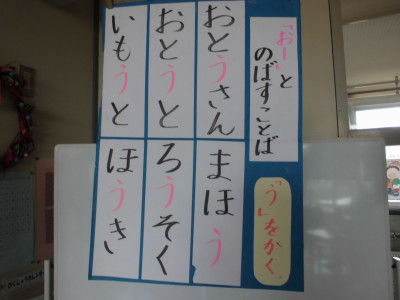 「おー」と
のばすことば
「う」をかく。
おとうさん
おとうと
いもうと
まほう
ろうそく
ほうき